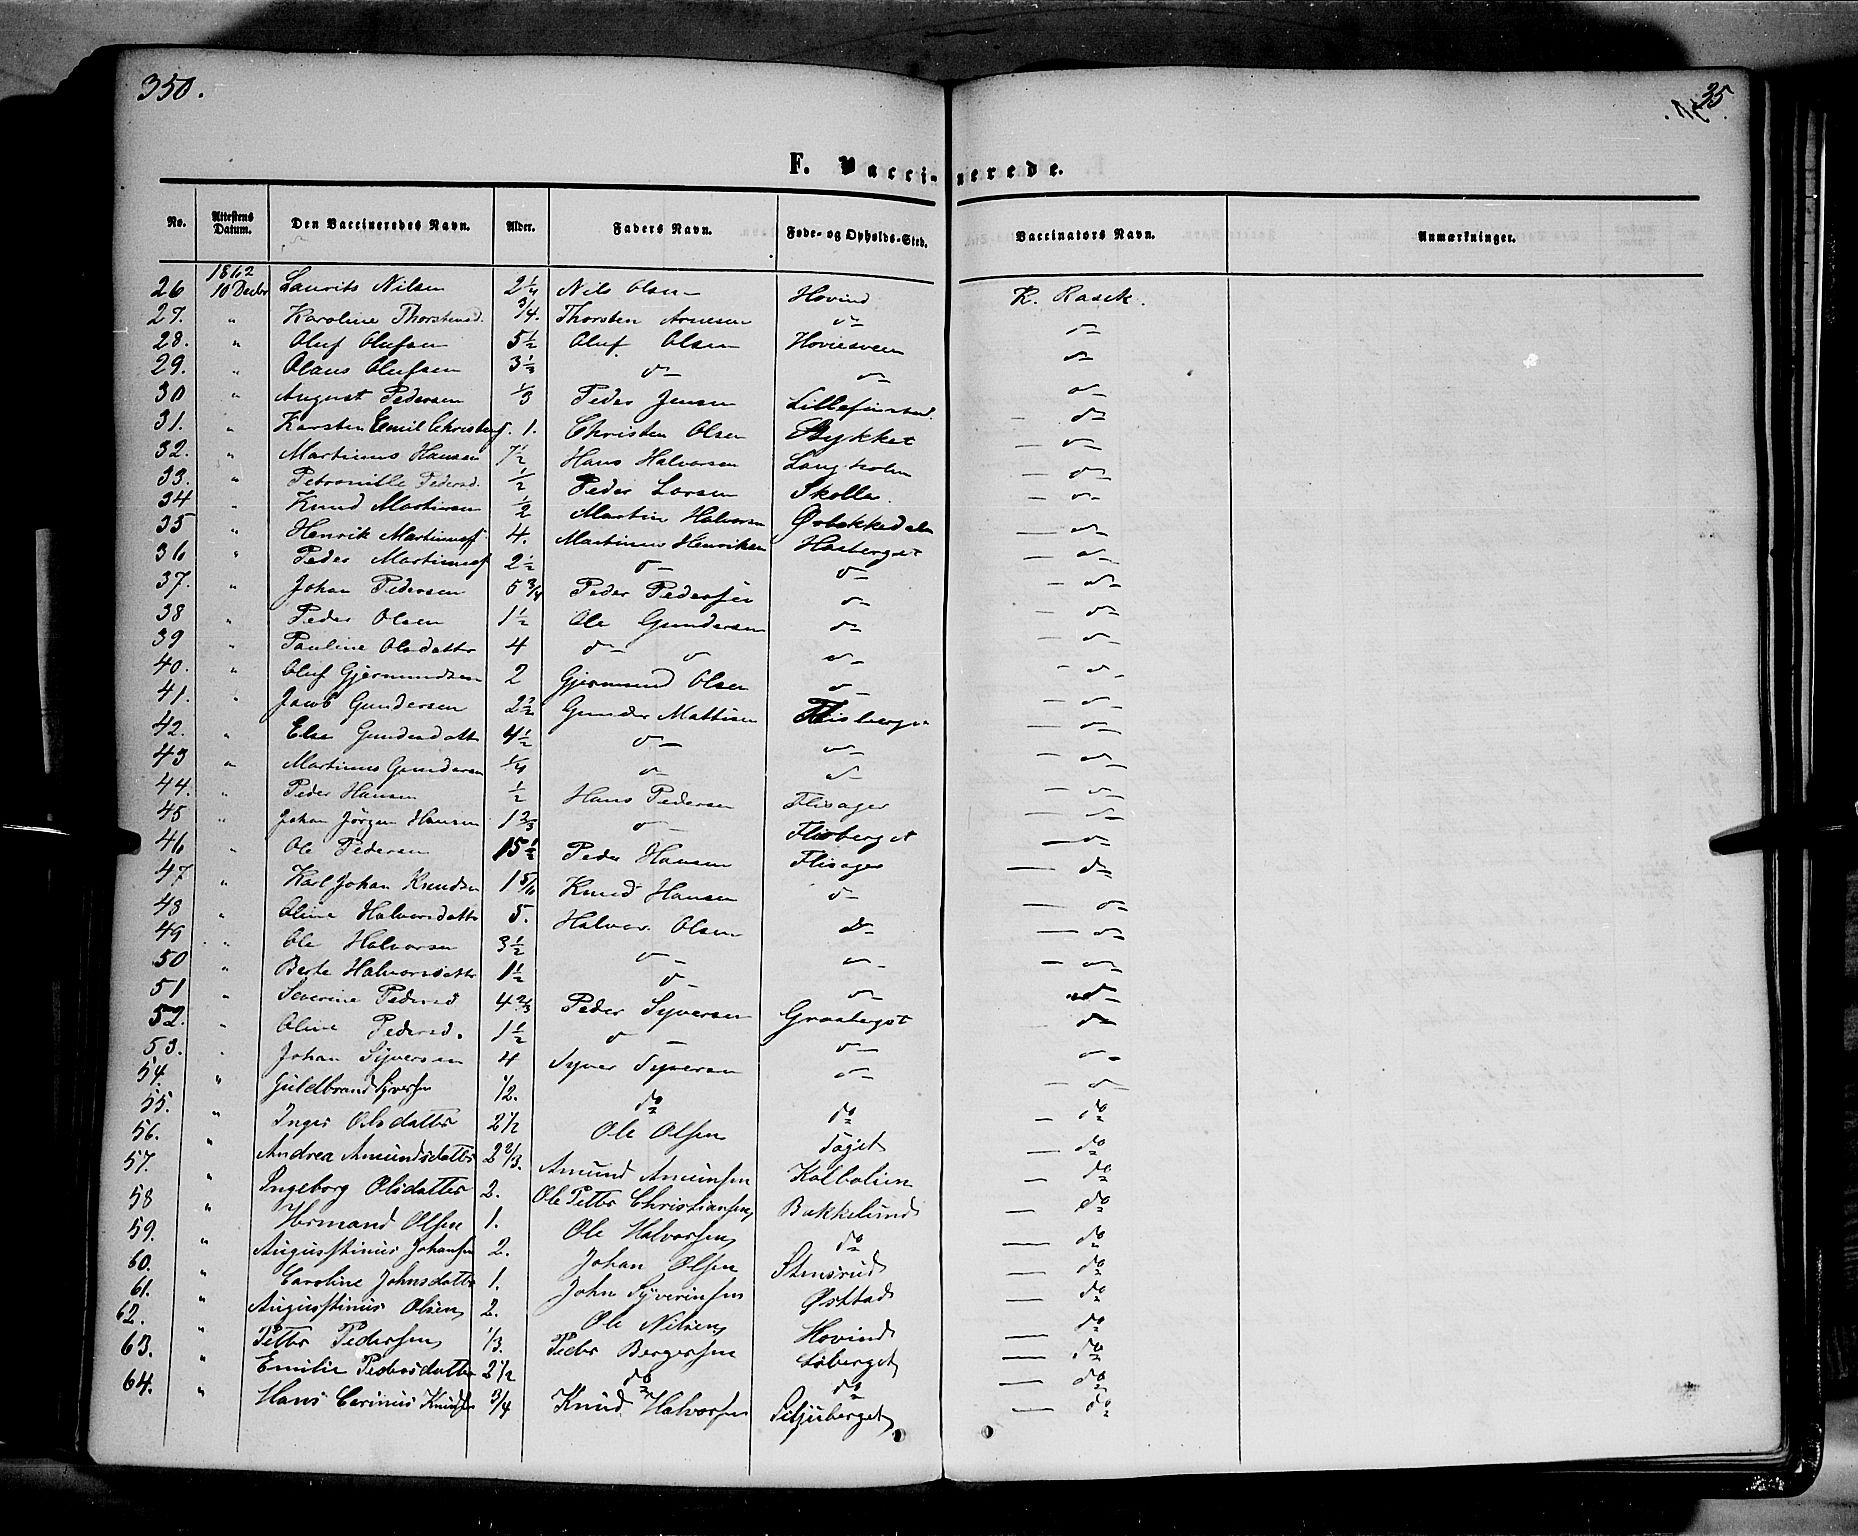 350.
35
F. Vaccinerede.
No. Attestens Datum. Den Vaccineredes Navn. Alder. Faders Navn. Føde- og Opholds-Sted. Vaccinators Navn. Anmærkninger.
1862
26 10 Decbr Laurits Nilsen 2 1/4 Nils Olsen Hovind K. Rasck.
27. " Karoline Thorstensd. 3/4. Thorsten Arnesen do do
28. " Oluf Olufsen 5 1/2 Oluf Olsen Hoviesveen do
29. " Olaus Olufsen 3 1/2 do do do
30 " August Pedersen 1/3 Peder Jensen do
31. " Karsten Emil 1. Christen Olsen Stykket do
32. " Martinus Hansen 7 1/2 Hans Halvorsen Langholm do
33. " Petronille Pedersd. 1/2 Peder Larsen Skolla. do
34 " Knud Martinsen 1/2 Martin Halvorsen do
35 " Henrik Martinusf 4. Martinus Henriksen do
36 " Peder Martinusf 2 1/2 do do do
37. " Johan Pedersen 5 3/4 Peder Pedersen do do
38 " Peder Olsen 1 1/2 Ole Gundersen do do
39 " Pauline Olsdatter 4 do do do do
40. " Oluf Gjermundsen 2 Gjermund Olsen do do
41. " Jacob Gundersen 2 1/2 Gunder Mattisen Flisberget do
42. " Else Gundersdattr 4 1/2 do do do
43 " Martinus Gundersen 1/4 do do do
44. " Peder Hansen 1/2 Hans Pedersen Flisager do
45 " Johan Jörgen Hansen 1 2/3 do Flisberget do
46 " Ole Pedersen 15 1/2 Peder Hansen Flisager do
47 " Karl Johan Knudsen 1 5/6 Knud Hansen do do
48 " Oline Halvorsdattr 5. Halvor Olsen do do
49 " Ole Halvorsen 3 1/2 do do do
50 " Berte Halvorsdattr 1 1/2 do do do
51 " Severine Pedersd 4 2/3 Peder Syversen Graabergst do
52. " Oline Pedersd. 1 1/2 do do do
53. " Johan Syversen 4 Syver Syversen do do
54. " Guldbrand Syversen 1/2. do do do
55. " Inger Olsdatter 2 1/2 Ole Olsen Taget do
56. " Andrea Amundsdatter 2 2/3. Amund Amunsen Kolbolien do
57. " Ingeborg Olsdatter 2. Ole Petter Christiansen Bakkelund do
58 " Hermand Olsen 1. Ole Halvorsen do do
59. " Augustinus Johansen 2. Johan Olsen Stensrud do
60. " Caroline Johnsdatter 1. John Syverinsen Østtad do
61. " Augustinus Olsen 2. Ole Nilsen Hovind do
62. " Petter Pedersen 1/3. Peder Bergersen Löberget do
63. " Emilie Pedersdatter 2 1/2 do do do
64. " Hans Carinus Knudsen 3/4 Knud Halvorsen Siljuberget do